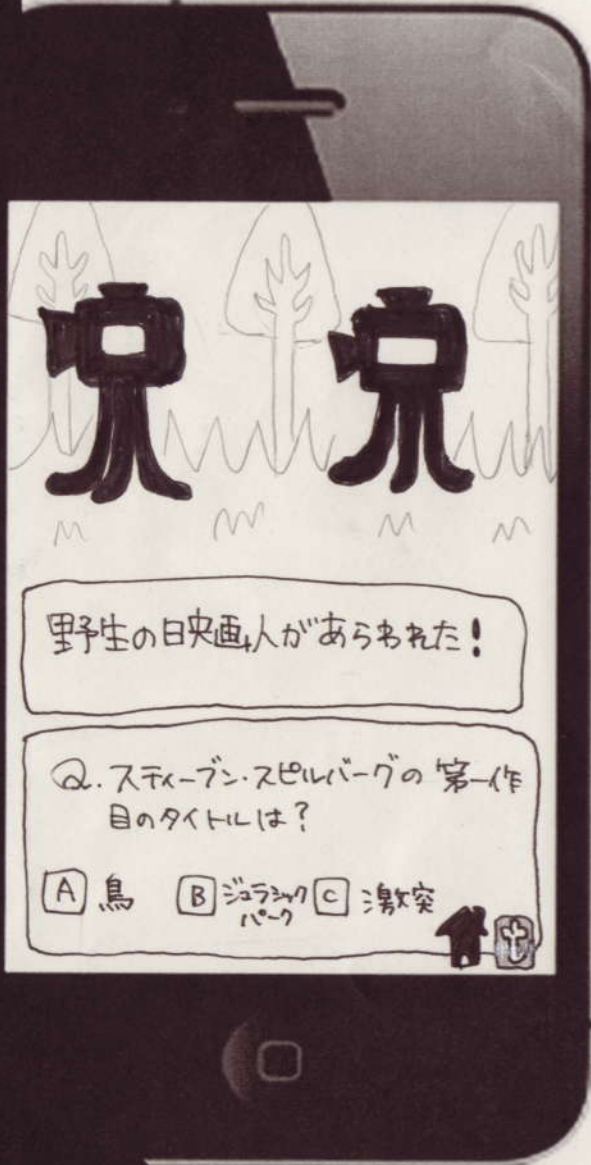 野生の映画人があらわれた!
Q. スティーブン・スピルバーグの 第一作
目のタイトルは?
A 鳥 B ジュラシック パーク C 激突